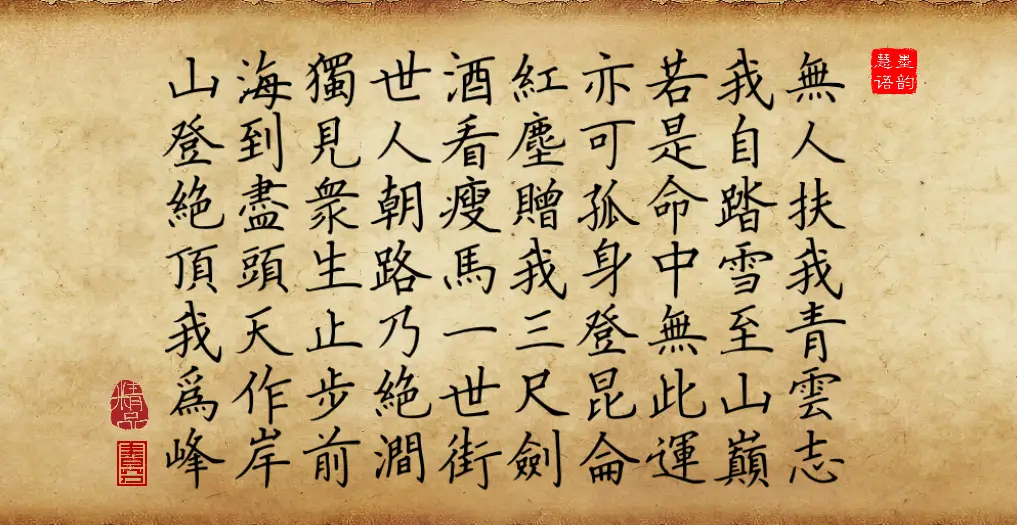 墨韵
慧语
無人扶我青雲志
我自踏雪至山巔
若是命中無此運
亦可孤身登昆侖
紅塵贈我三尺劍
酒看瘦馬一世街
世人朝路乃絶澗
獨見衆生止步前
海到盡頭天作岸
山登絶頂我爲峰
精品